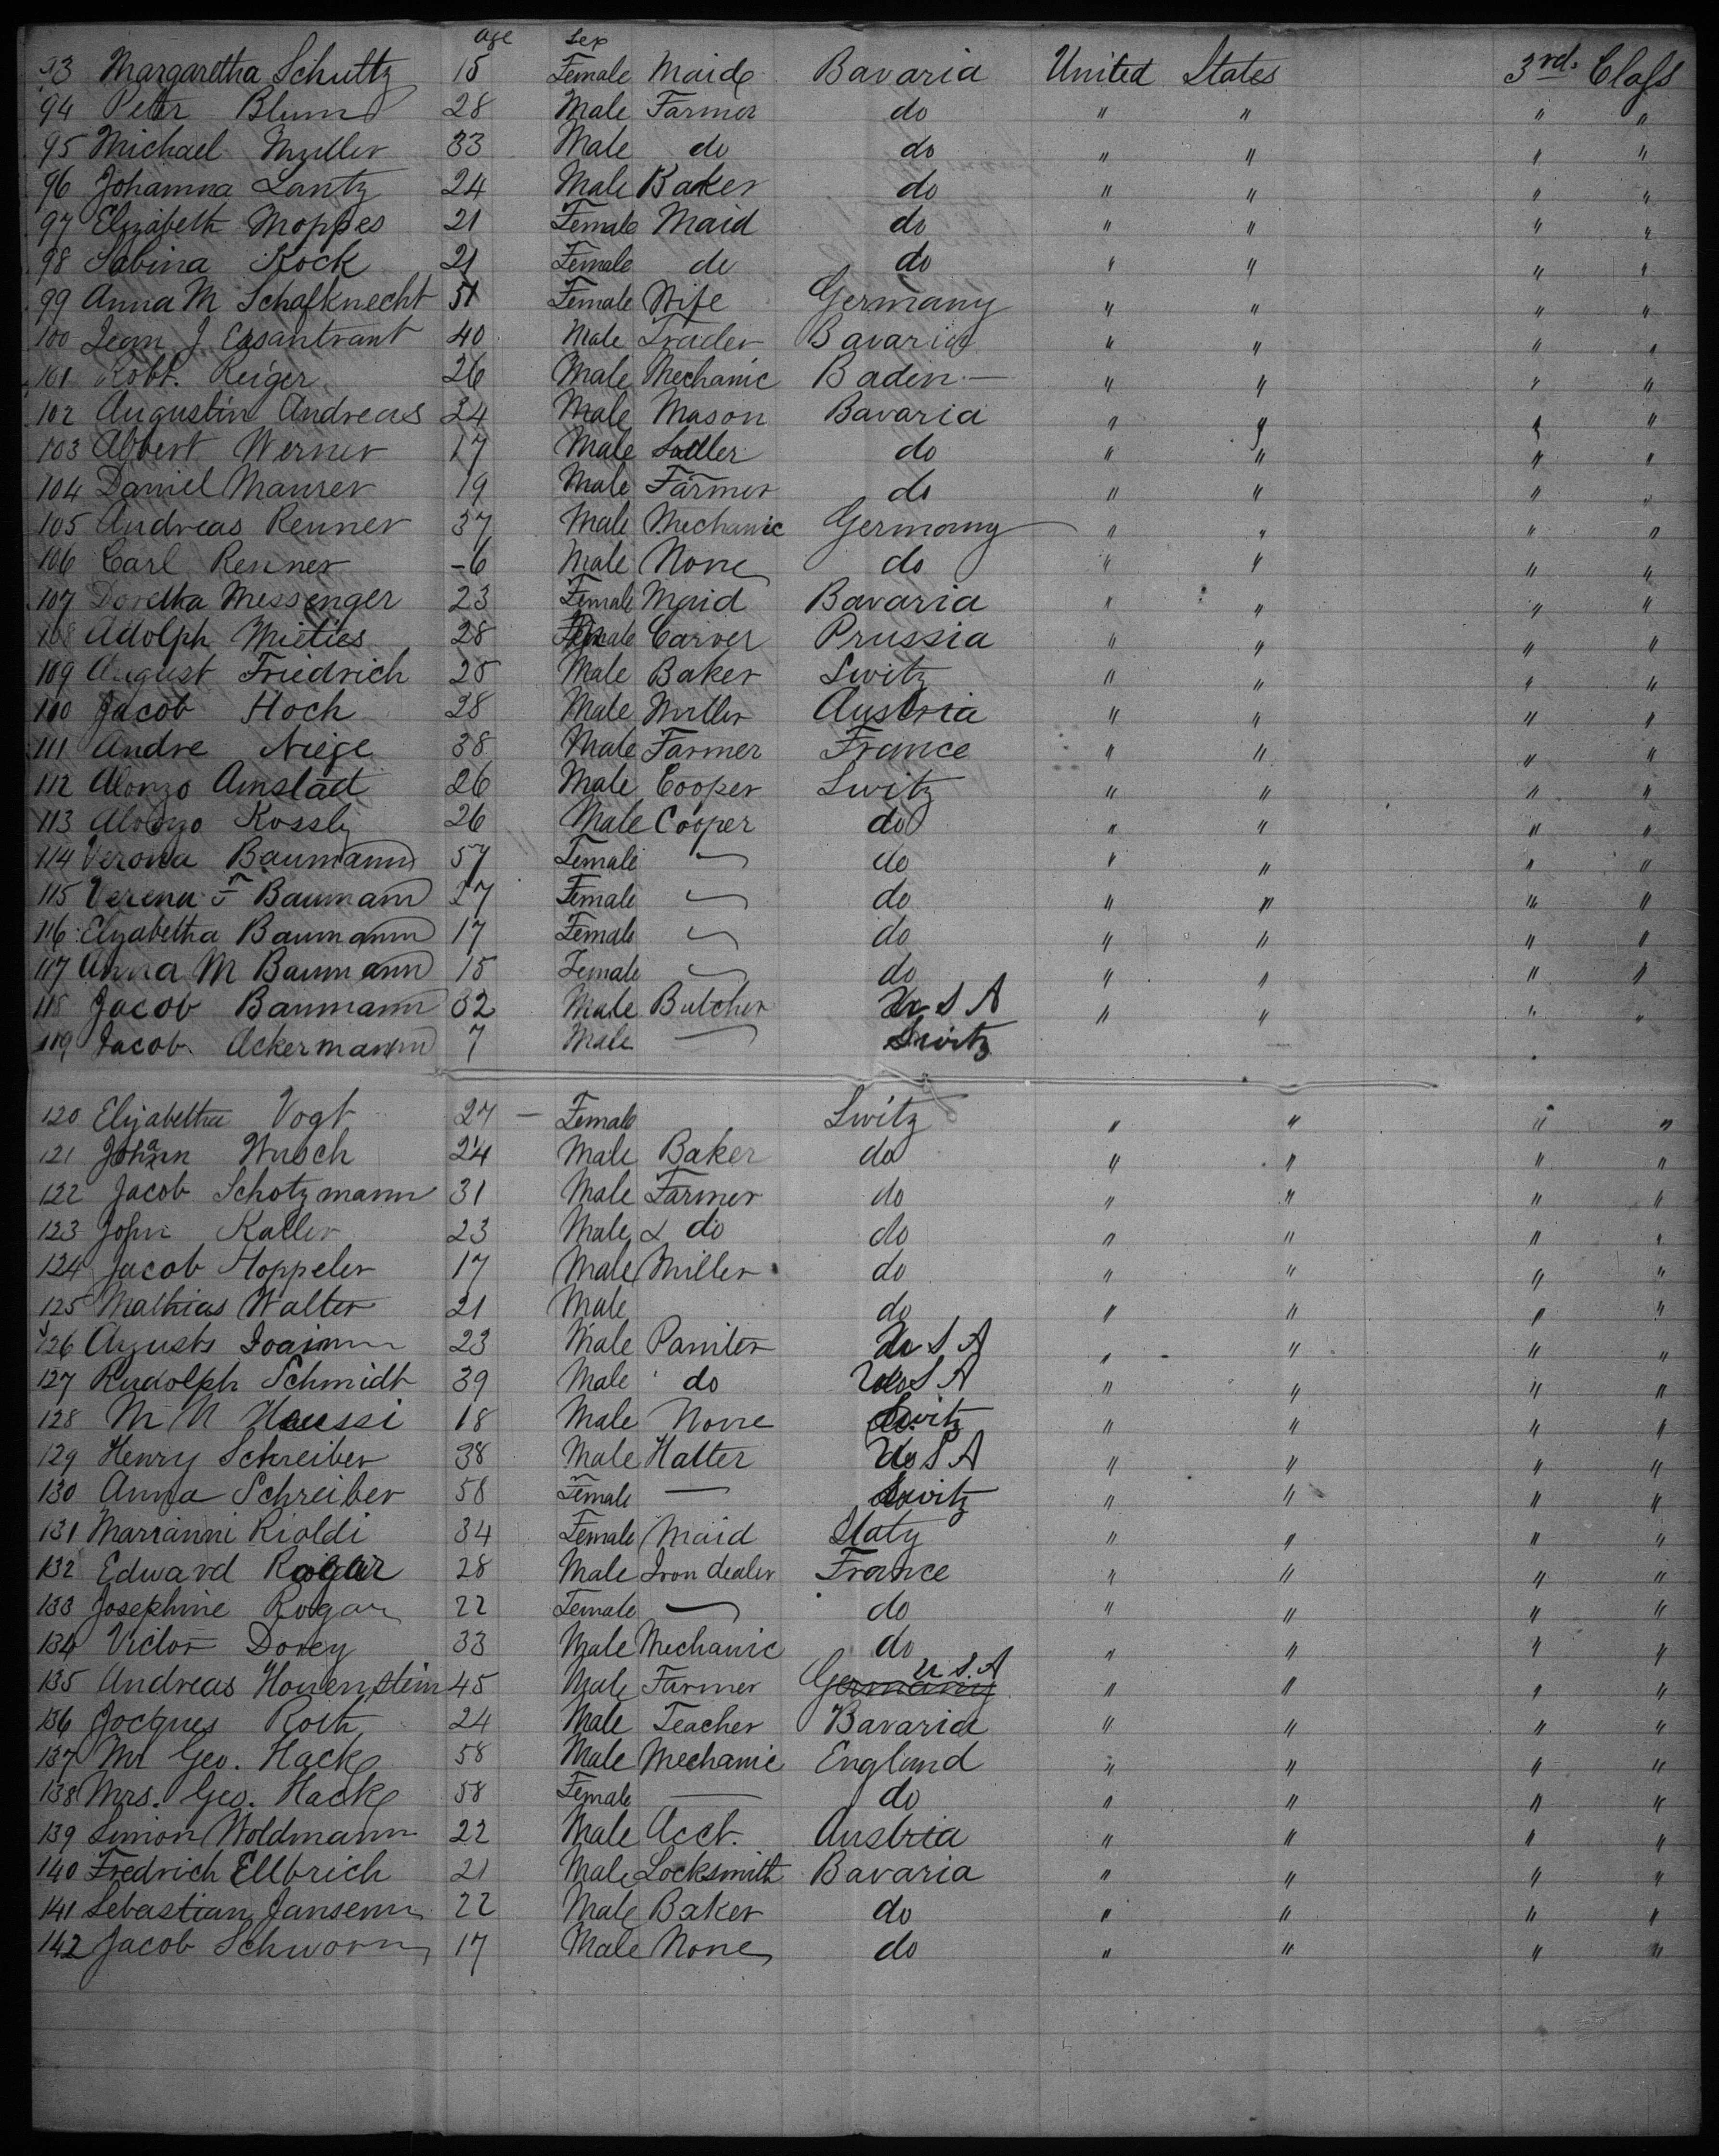 age Sex
93 Margaretha Schultz 15 Female Maid Bavaria United States 3rd. Class
94 Peter Blum 28 Male Farmer do " " " "
95 Michael Muller 33 Male do do " " " "
96 Johanna Lantz 24 Male Baker do " " " "
97 Elizabeth Moppes 21 Female Maid do " " " "
98 Sabina Kock 21 Female do do " " " "
99 Anna M Schafknecht 51 Female Wife Germany " " " "
100 Jean J 40 Male Trader Bavaria " " " "
101 Robt. Reiger 26 Male Mechanic Baden — " " " "
102 Augustin Andreas 24 Male Mason Bavaria " " " "
103 Albert Werner 17 Male do " " " "
104 Daniel Maurer 19 Male Farmer do " " " "
105 Andreas Renner 37 Male Mechanic Germany " " " "
106 Carl Renner 6 Male None do " " " "
107 Doretha Messenger 23 Female Maid Bavaria " " " "
108 Adolph Mieties 28 Male Carver Prussia " " " "
109 August Friedrich 25 Male Baker Switz " " " "
110 Jacob Hoch 28 Male Miller Austria " " " "
111 Andre Niege 38 Male Farmer France " " " "
112 Alonzo Amstad 26 Male Cooper Switz " " " "
113 Alonzo Kossly 26 Male Cooper do " " " "
114 Verona Baumann 57 Female — do " " " "
115 Verena F Baumann 27 Female — do " " " "
116 Elizabetha Baumann 17 Female — do " " " "
117 Anna M Baumann 15 Female — do " " " "
118 Jacob Baumann 32 Male Butcher U S A " " " "
119 Jacob Ackermann 7 Male — Switz
120 Elizabetha Vogt 27 — Female Switz " " " "
121 Johann Wusch 24 Male Baker do " " " "
122 Jacob Schotzmann 31 Male Farmer do " " " "
123 John Kaller 23 Male do do " " " "
124 Jacob Hoppeler 17 Male Miller do " " " "
125 Mathias Walter 21 Male do " " " "
126 23 Male Painter U S A " " " "
127 Rudolph Schmidt 39 Male do U S A " " " "
128 M N Haussi 18 Male None Switz " " " "
129 Henry Schreiber 38 Male Hatter U S A " " " "
130 Anna Schreiber 58 Female — Switz " " " "
131 Marianni Rioldi 34 Female Maid Italy " " " "
132 Edward Rogar 28 Male Iron dealer France " " " "
133 Josephine Rogar 22 Female — do " " " "
134 Victor Dorey 33 Male Mechanic do " " " "
135 Andreas Houenstein 45 Male Farmer Germany U S. A " " " "
136 Jocques Roth 24 Male Teacher Bavaria " " " "
137 Mr Geo. Hack 58 Male Mechanic England " " " "
138 Mrs. Geo. Hack 58 Female — do " " " "
139 Simon Woldmann 22 Male Acct. Austria " " " "
140 Fredrich Ellbrich 21 Male Locksmith Bavaria " " " "
141 Sebastian Jansenn 22 Male Baker do " " " "
142 Jacob Schworn 17 Male None do " " " "